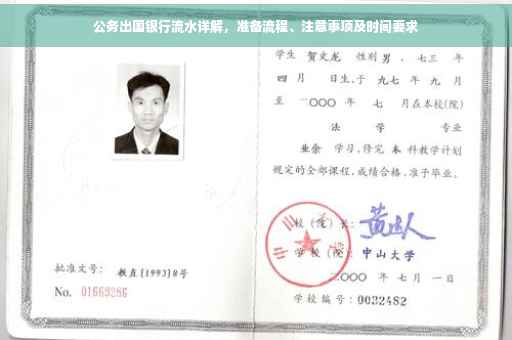 公务出国银行流水详解，准备流程、注意事项及时间要求
学生 贺文龙 性别 男，七三 年
四 月 日生，于 九七 年 九 月
至 二〇〇〇 年 七 月在本校(院)
法 学 专业
业余 学习，修完 本 科教学计划
规定的全部课程，成绩合格，准予毕业。
校（院）长：
学 校（院）：中山大学
二〇〇〇 年 七 月 一 日
学校编号：0032482
批准文号：教直[1993]8号
No. 01669286